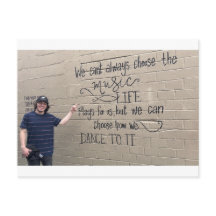 We can't always choose the
music
LIFE
Plays for us but we can
choose how we
DANCE TO IT